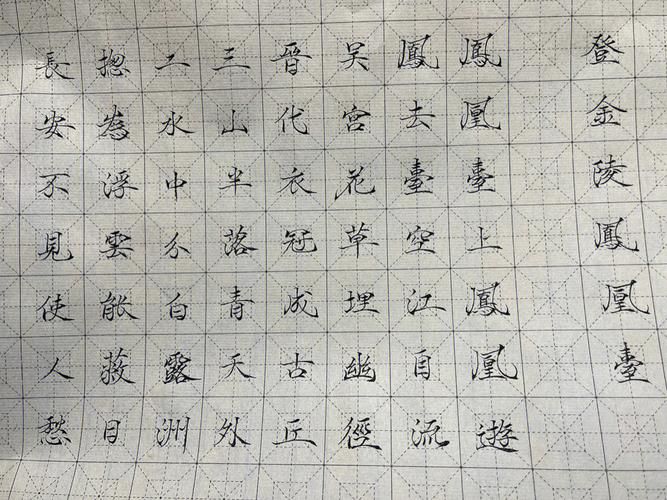 登金陵鳳凰臺
鳳凰臺上鳳凰遊
鳳去臺空江自流
吴宮花草埋幽徑
晉代衣冠成古丘
三山半落青天外
二水中分白露洲
揔為浮雲能蔽日
長安不見使人愁